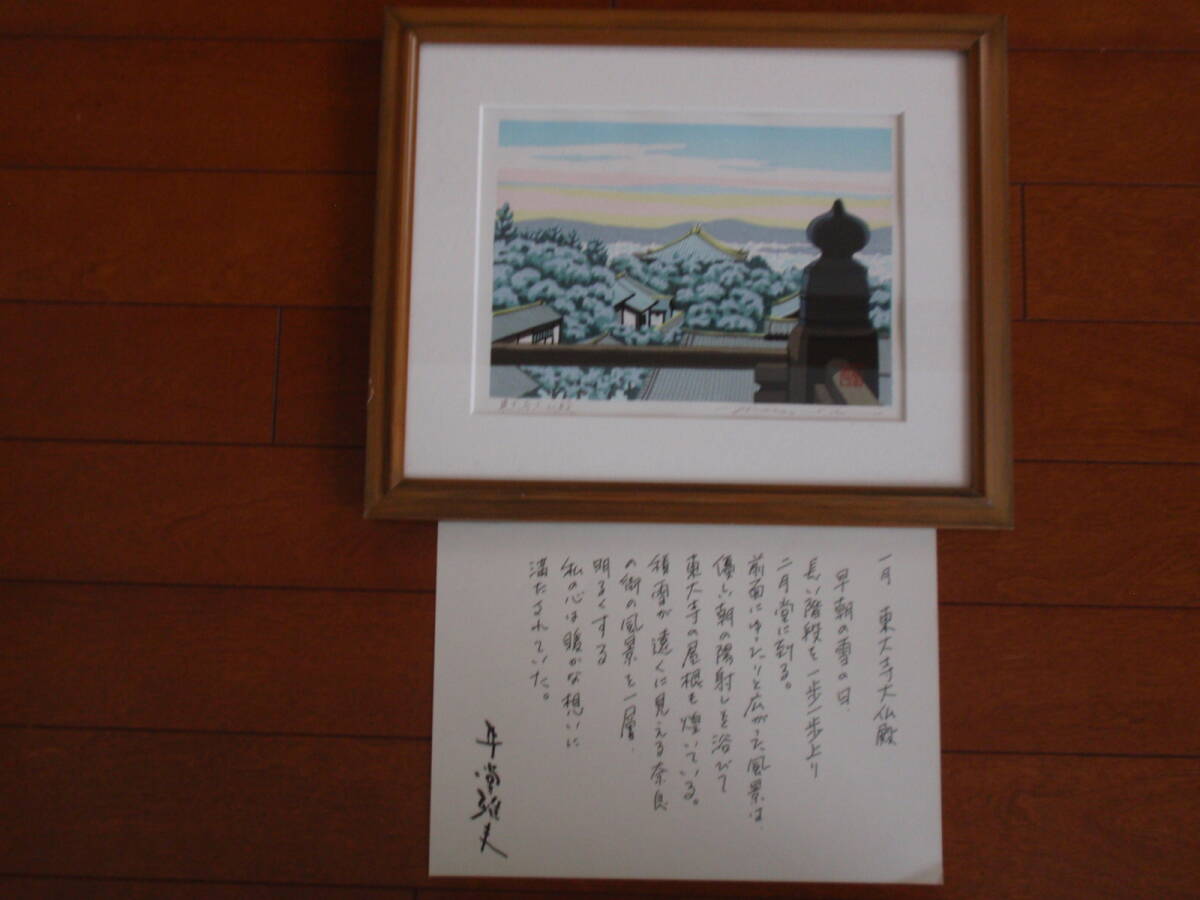 東大寺大仏殿
一月 東大寺大仏殿
早朝の雪の日、
長い階段を一歩一歩上り
二月堂に到る。
前面にゆったりと広がった風景は、
優しい朝の陽射しを浴びて
東大寺の屋根も煌いている。
積雪が遠くに見える奈良
の街の風景を一層、
明るくする
私の心は暖かな想いに
満たされていた。
井堂雅夫